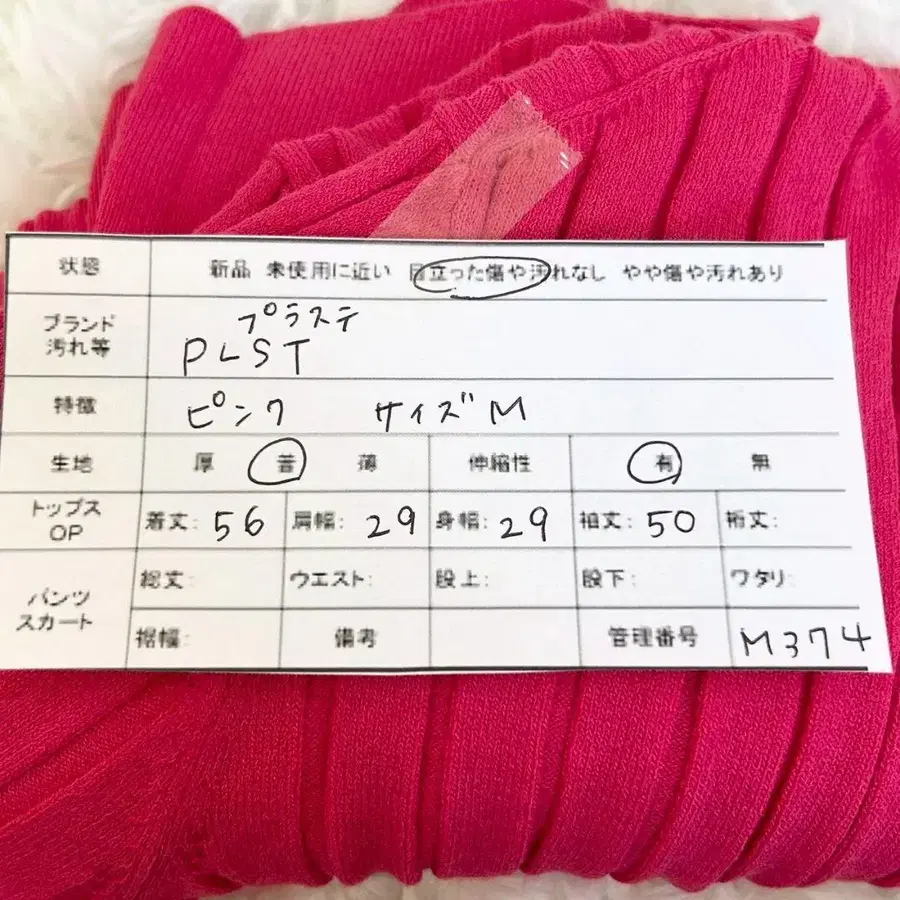 状態 新品 未使用に近い 目立った傷や汚れなし やや傷や汚れあり
ブランド 汚れ等 プラステ
PLST
特徴 ピンク サイズM
生地 厚 普 薄 伸縮性 有 無
トップス OP 着丈: 56 肩幅: 29 身幅: 29 袖丈: 50 裄丈:
パンツ スカート 総丈: ウエスト: 股上: 股下: ワタリ:
裾幅: 備考 管理番号 M374